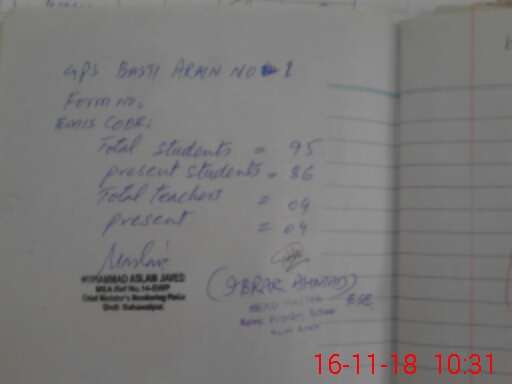 GPS BASTI ARAIN NO 1
Form no:
EMIS CODE:
Total students = 95
present students = 86
Total teachers = 04
present = 04
MUHAMMAD ASLAM JAVED
MEA Ref No.14-BWP
Chief Minister's Monitoring Force
Distt: Bahawalpur.
(IBRAR AHMAD)
HEAD MASTER ESE
School
16-11-18 10:31